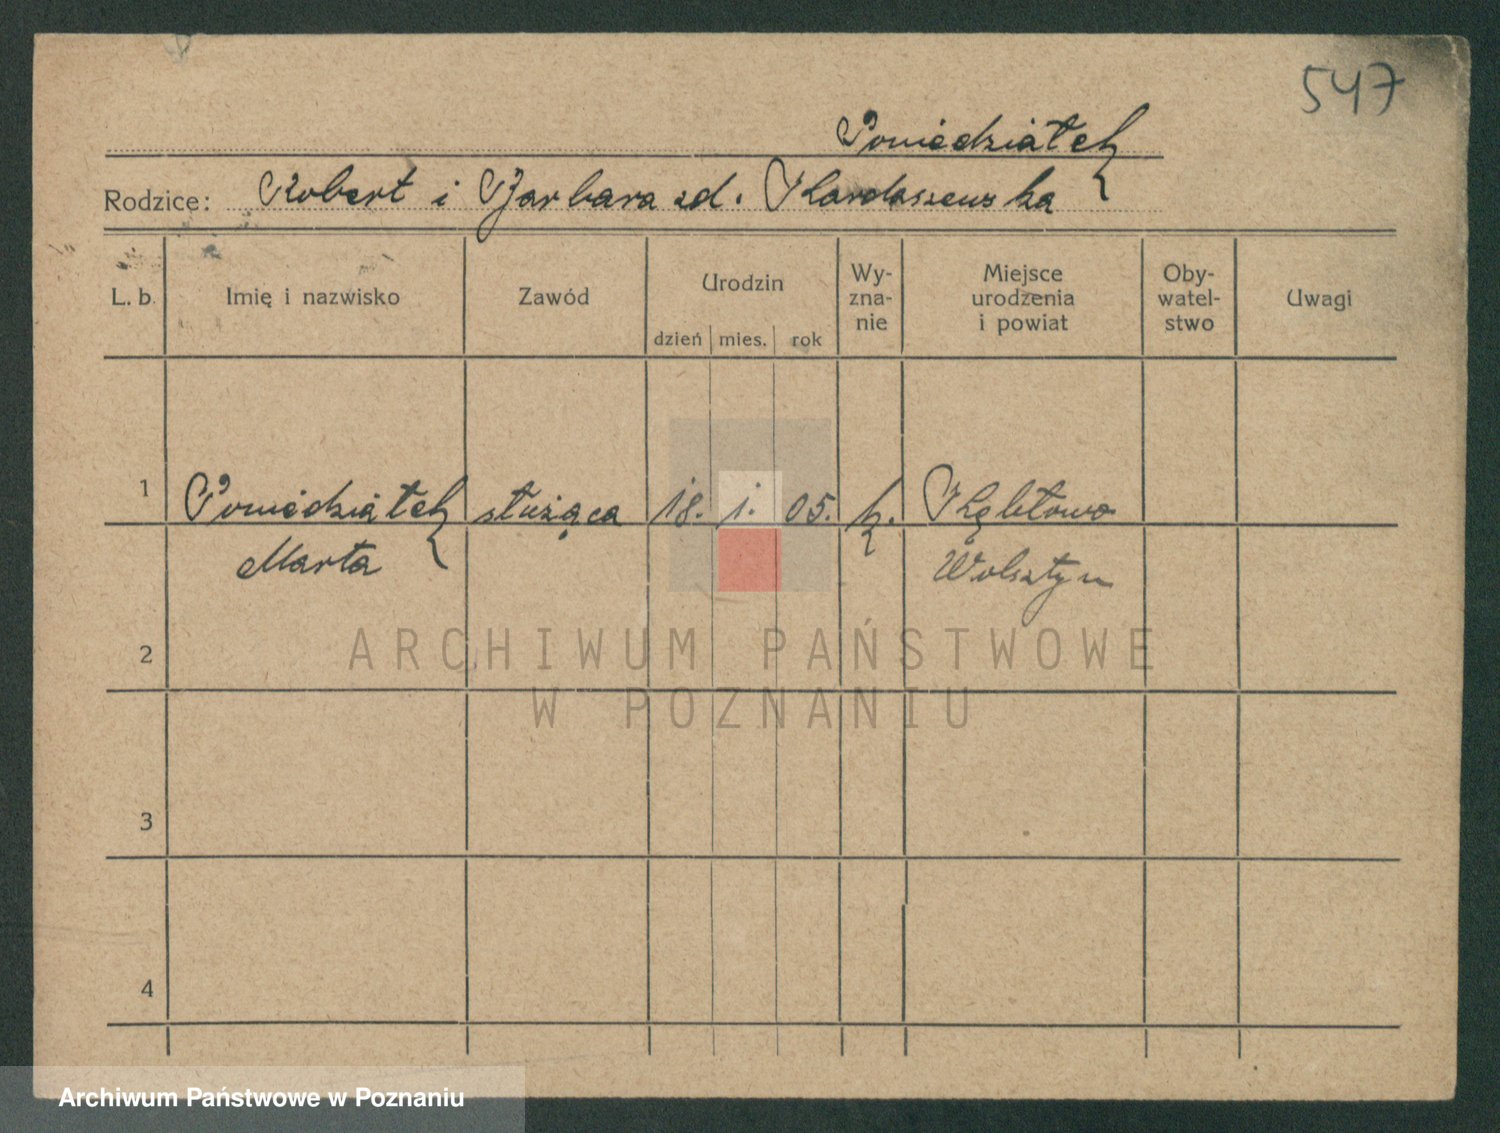 547
Poniedziałek
Rodzice: Robert i Barbara zd. Kardaszewska
L. b. Imię i nazwisko Zawód Urodzin Wy-zna-nie Miejsce urodzenia i powiat Oby-watel-stwo Uwagi
dzień mies. rok
1 Poniedziałek służąca 18. 1. 05. k. Kębłowo
Marta Wolsztyn
2
ARCHIWUM PAŃSTWOWE
W POZNANIU
3
4
Archiwum Państwowe w Poznaniu